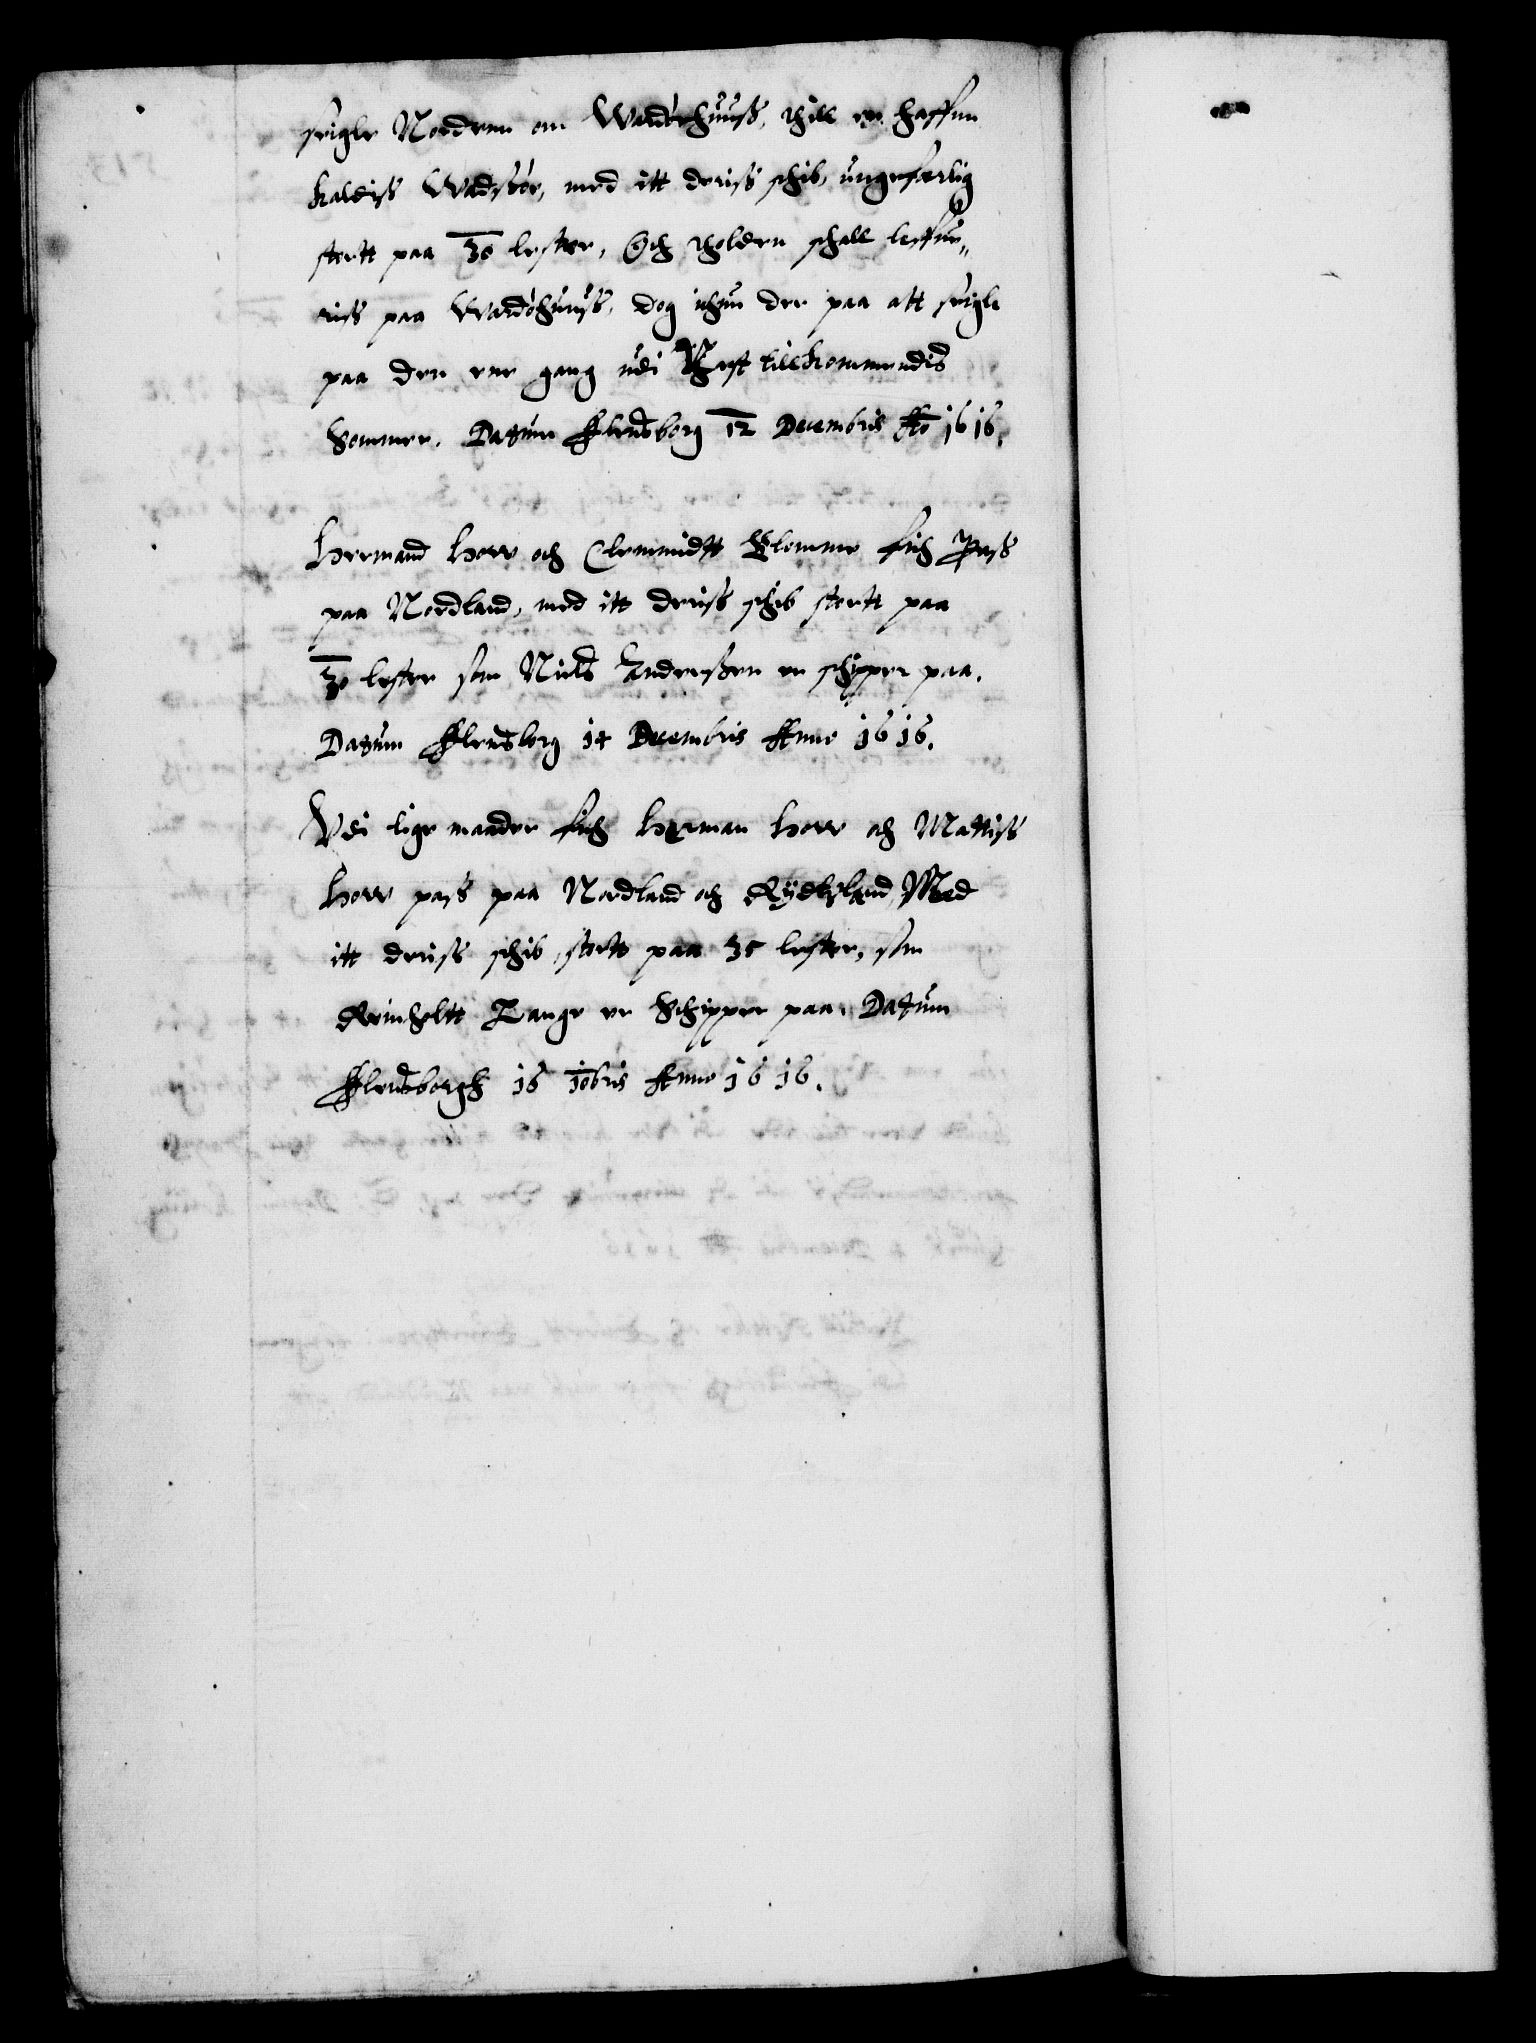 seigle Norden om Wardøehuuss, thill en haffun
kaldiss Wadsöe, med itt deriss schib, ungeferlig
stortt paa 30 lester, Och tholden schall leffue„
riss paa Wardöhuuss, dog ickun der paa att seigle
paa den ene gang udi Först tillkommendis
Sommer. Datum Flensborg 12 Decembris Ao 1616.
Hermand Hoew och Clemmidtt Blomme fich Pass
paa Nordland, med itt deriss schib stortt paa
30 lester som Niels Anderssen er schipper paa.
Datum Flensborg 14 Decembris Anno 1616.
Udi lige maader fich Herman Hoew och Mattiss
Hoew pass paa Nordland och Rydtzland, Med
itt deriss schib, stortt paa 35 lester, som
Reinholtt Lange er Schipper paa, Datum
Flensborgh 16 10bris Anno 1616.